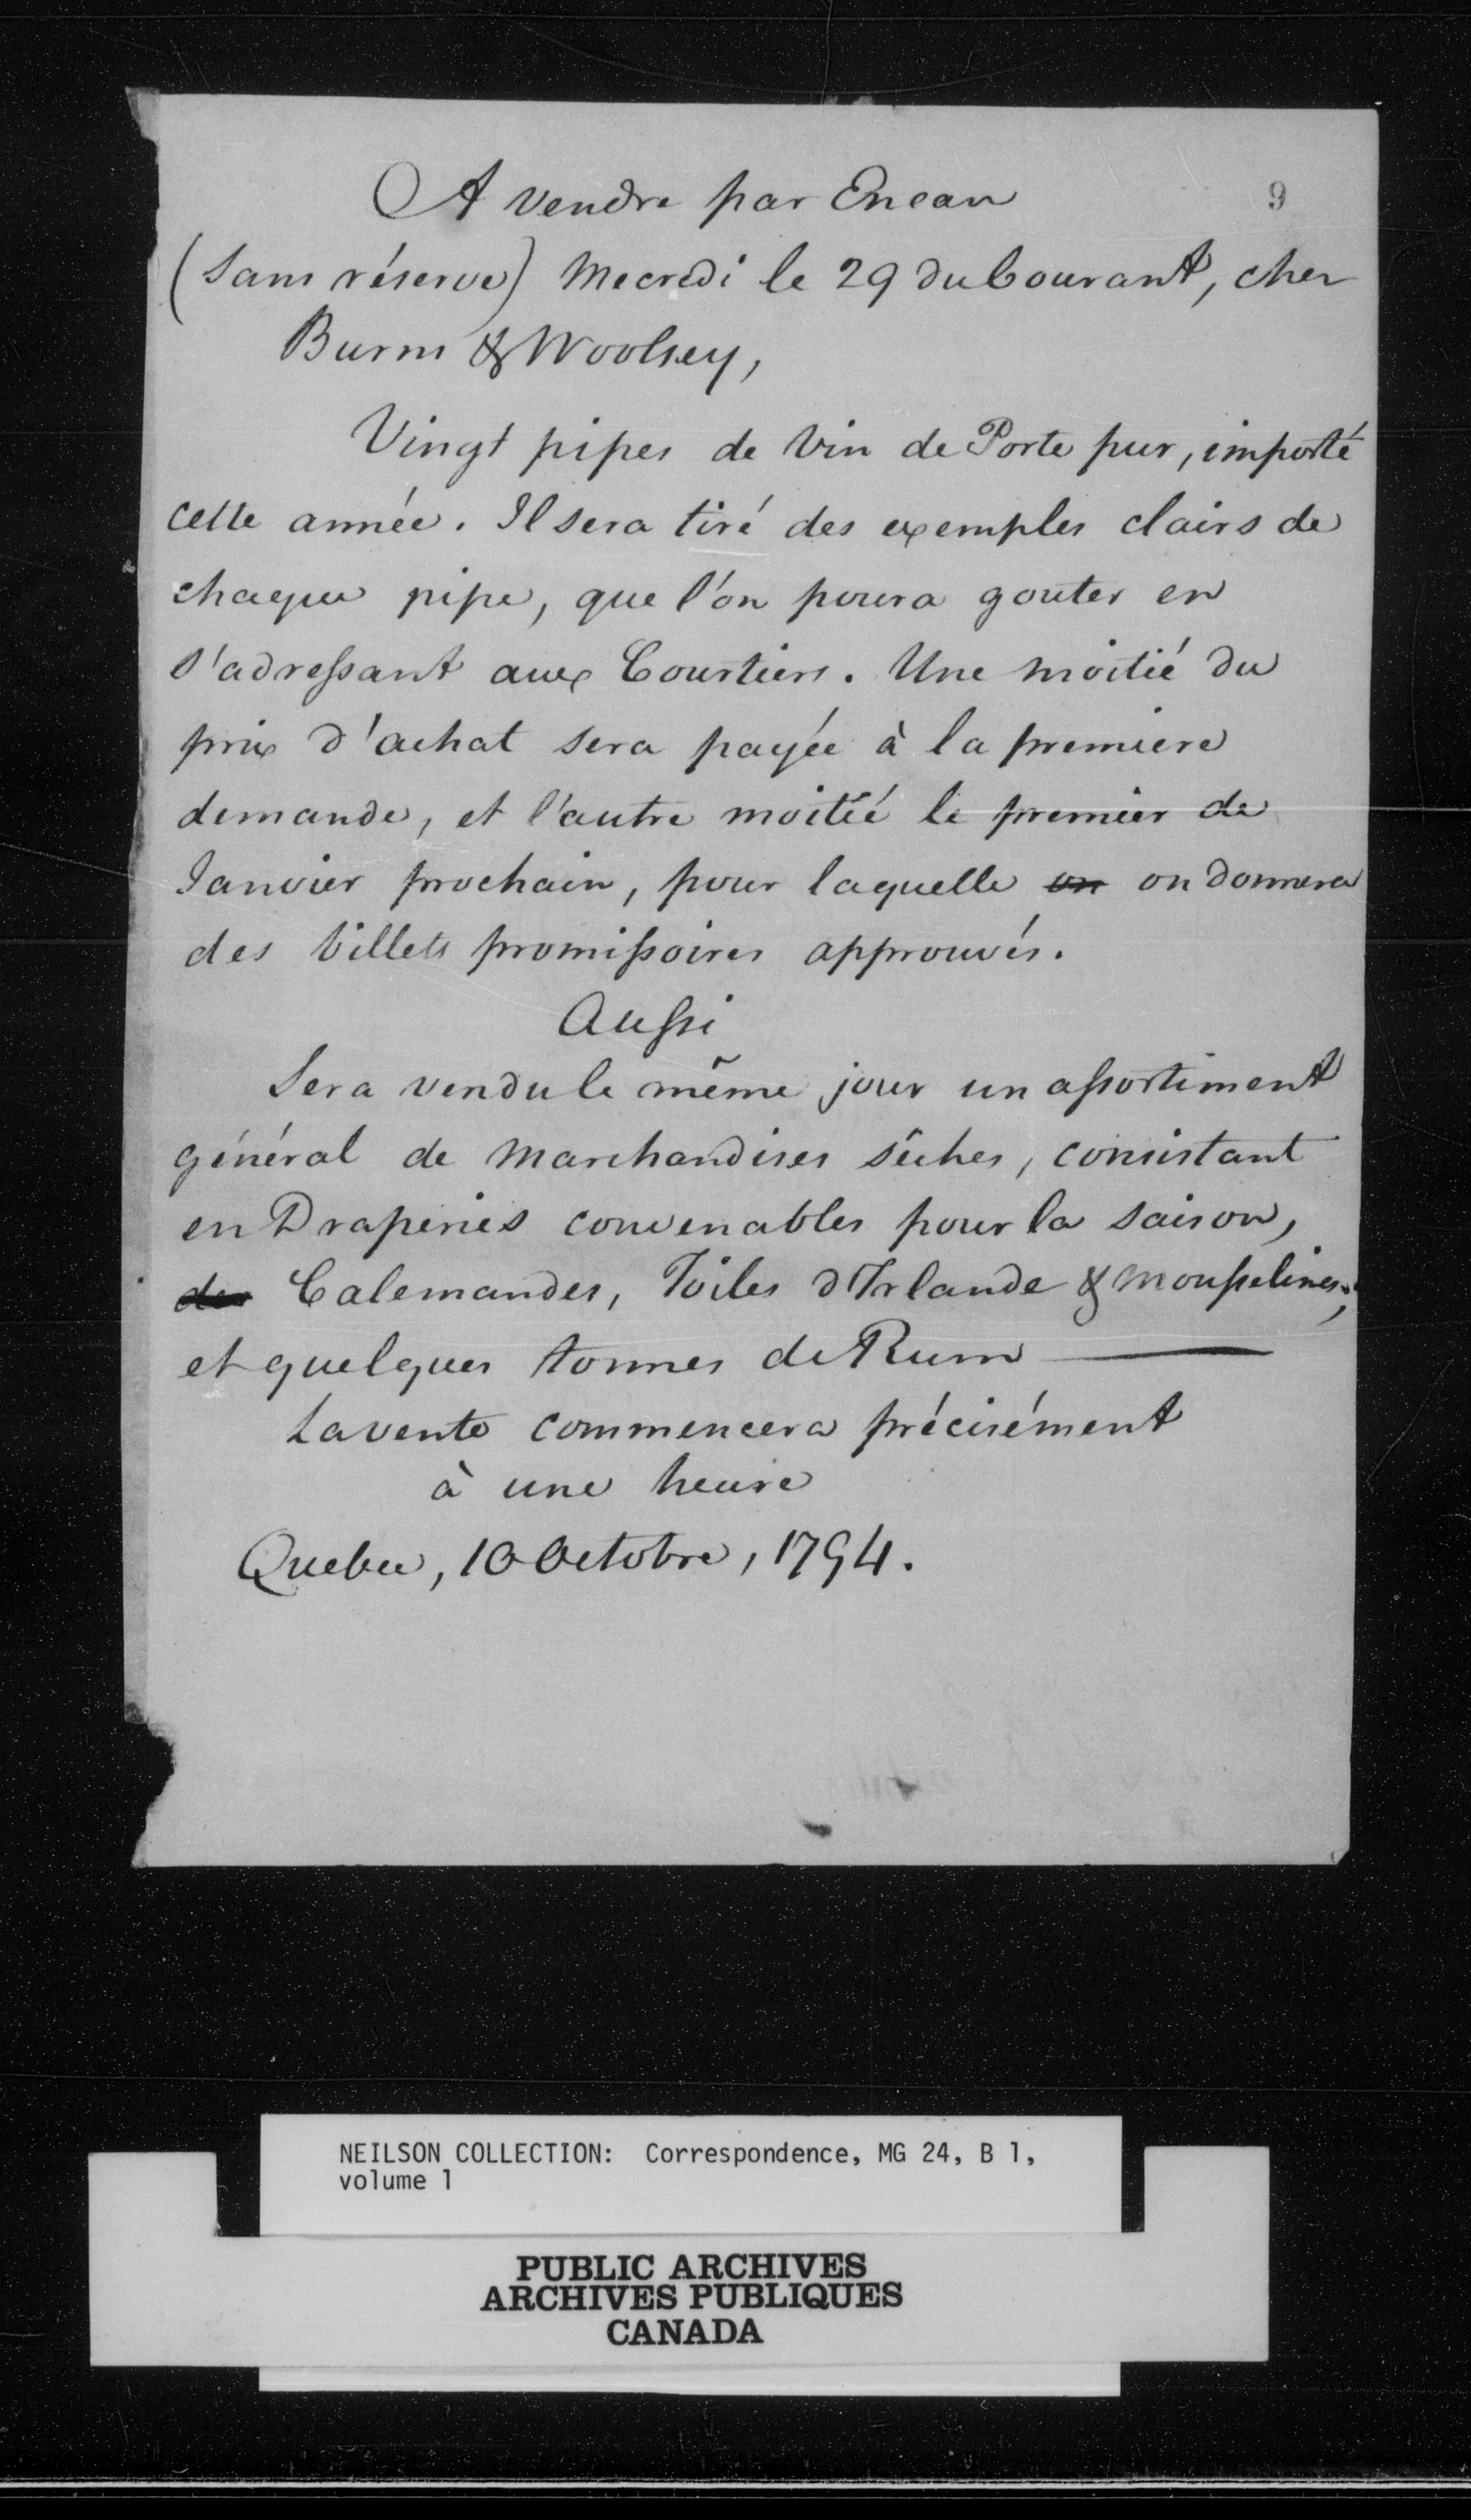 A vendre par Encan
9
(Sans réserve) Mecredi le 29 du Courant, chez
Burns & Woolsey,
Vingt pipes de Vin de Porte pur, importé
cette année. Il sera tiré des exemples clairs de
chaque pipe, que l'on poura gouter en
s'adressant aux Courtiers. Une moitié du
prix d'achat sera payée à la premiere
demande, et l'autre moitié le premier de
Janvier prochain, pour laquelle on on donnera
des billets promissoires approuvés.
Aussi
Sera vendu le même jour un assortiment
général de Marchandises sêches, consistant
en Draperies convenables pour la saison,
des Calemandes, Toiles d'Irlande & Mousselines;
et quelques tonnes de Rum —
La vente commencera précisément
à une heure
Quebec, 10 Octobre, 1794.
NEILSON COLLECTION: Correspondence, MG 24, B 1,
volume 1
PUBLIC ARCHIVES
ARCHIVES PUBLIQUES
CANADA